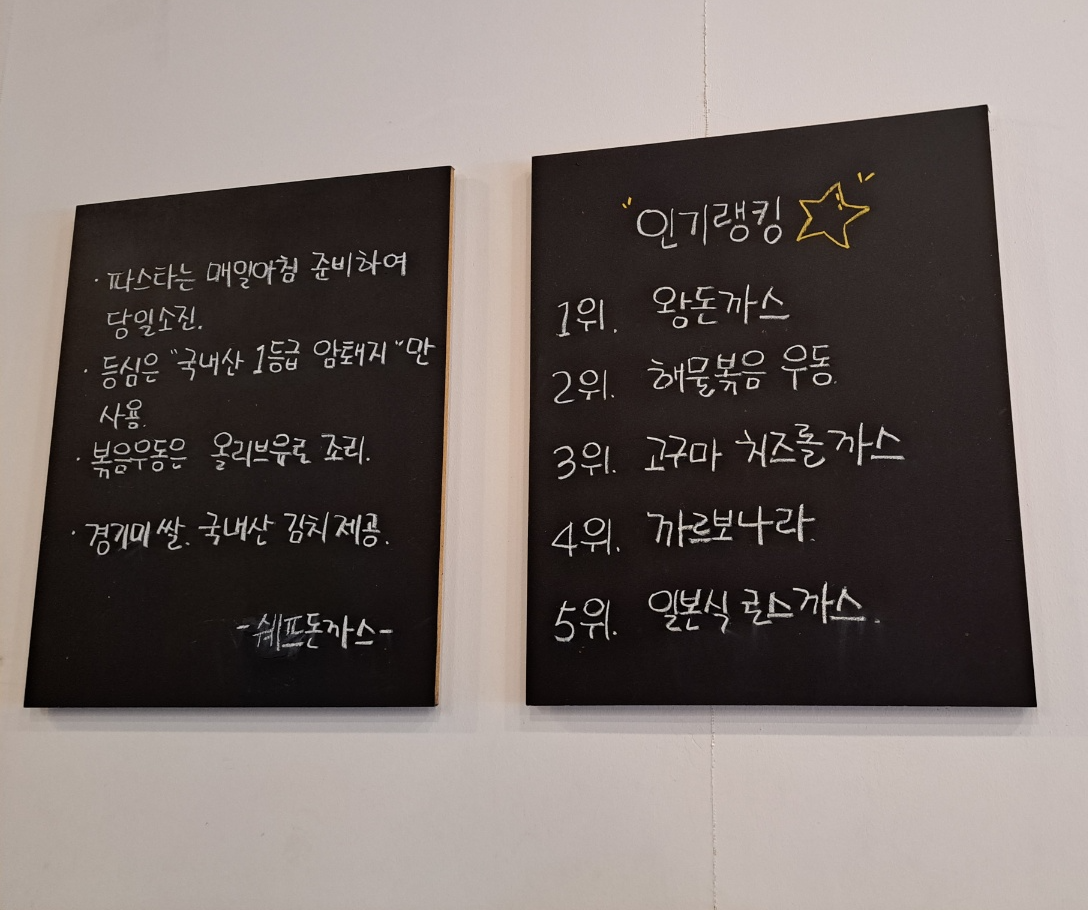 · 파스타는 매일아침 준비하여
당일소진.
· 등심은 "국내산 1등급 암퇘지"만
사용.
· 볶음우동은 올리브유로 조리.
· 경기미 쌀. 국내산 김치 제공.
-쉐프돈까스-
"인기랭킹☆"
1위. 왕돈까스
2위. 해물볶음 우동.
3위. 고구마 치즈롤까스
4위. 까르보나라.
5위. 일본식 로스까스.